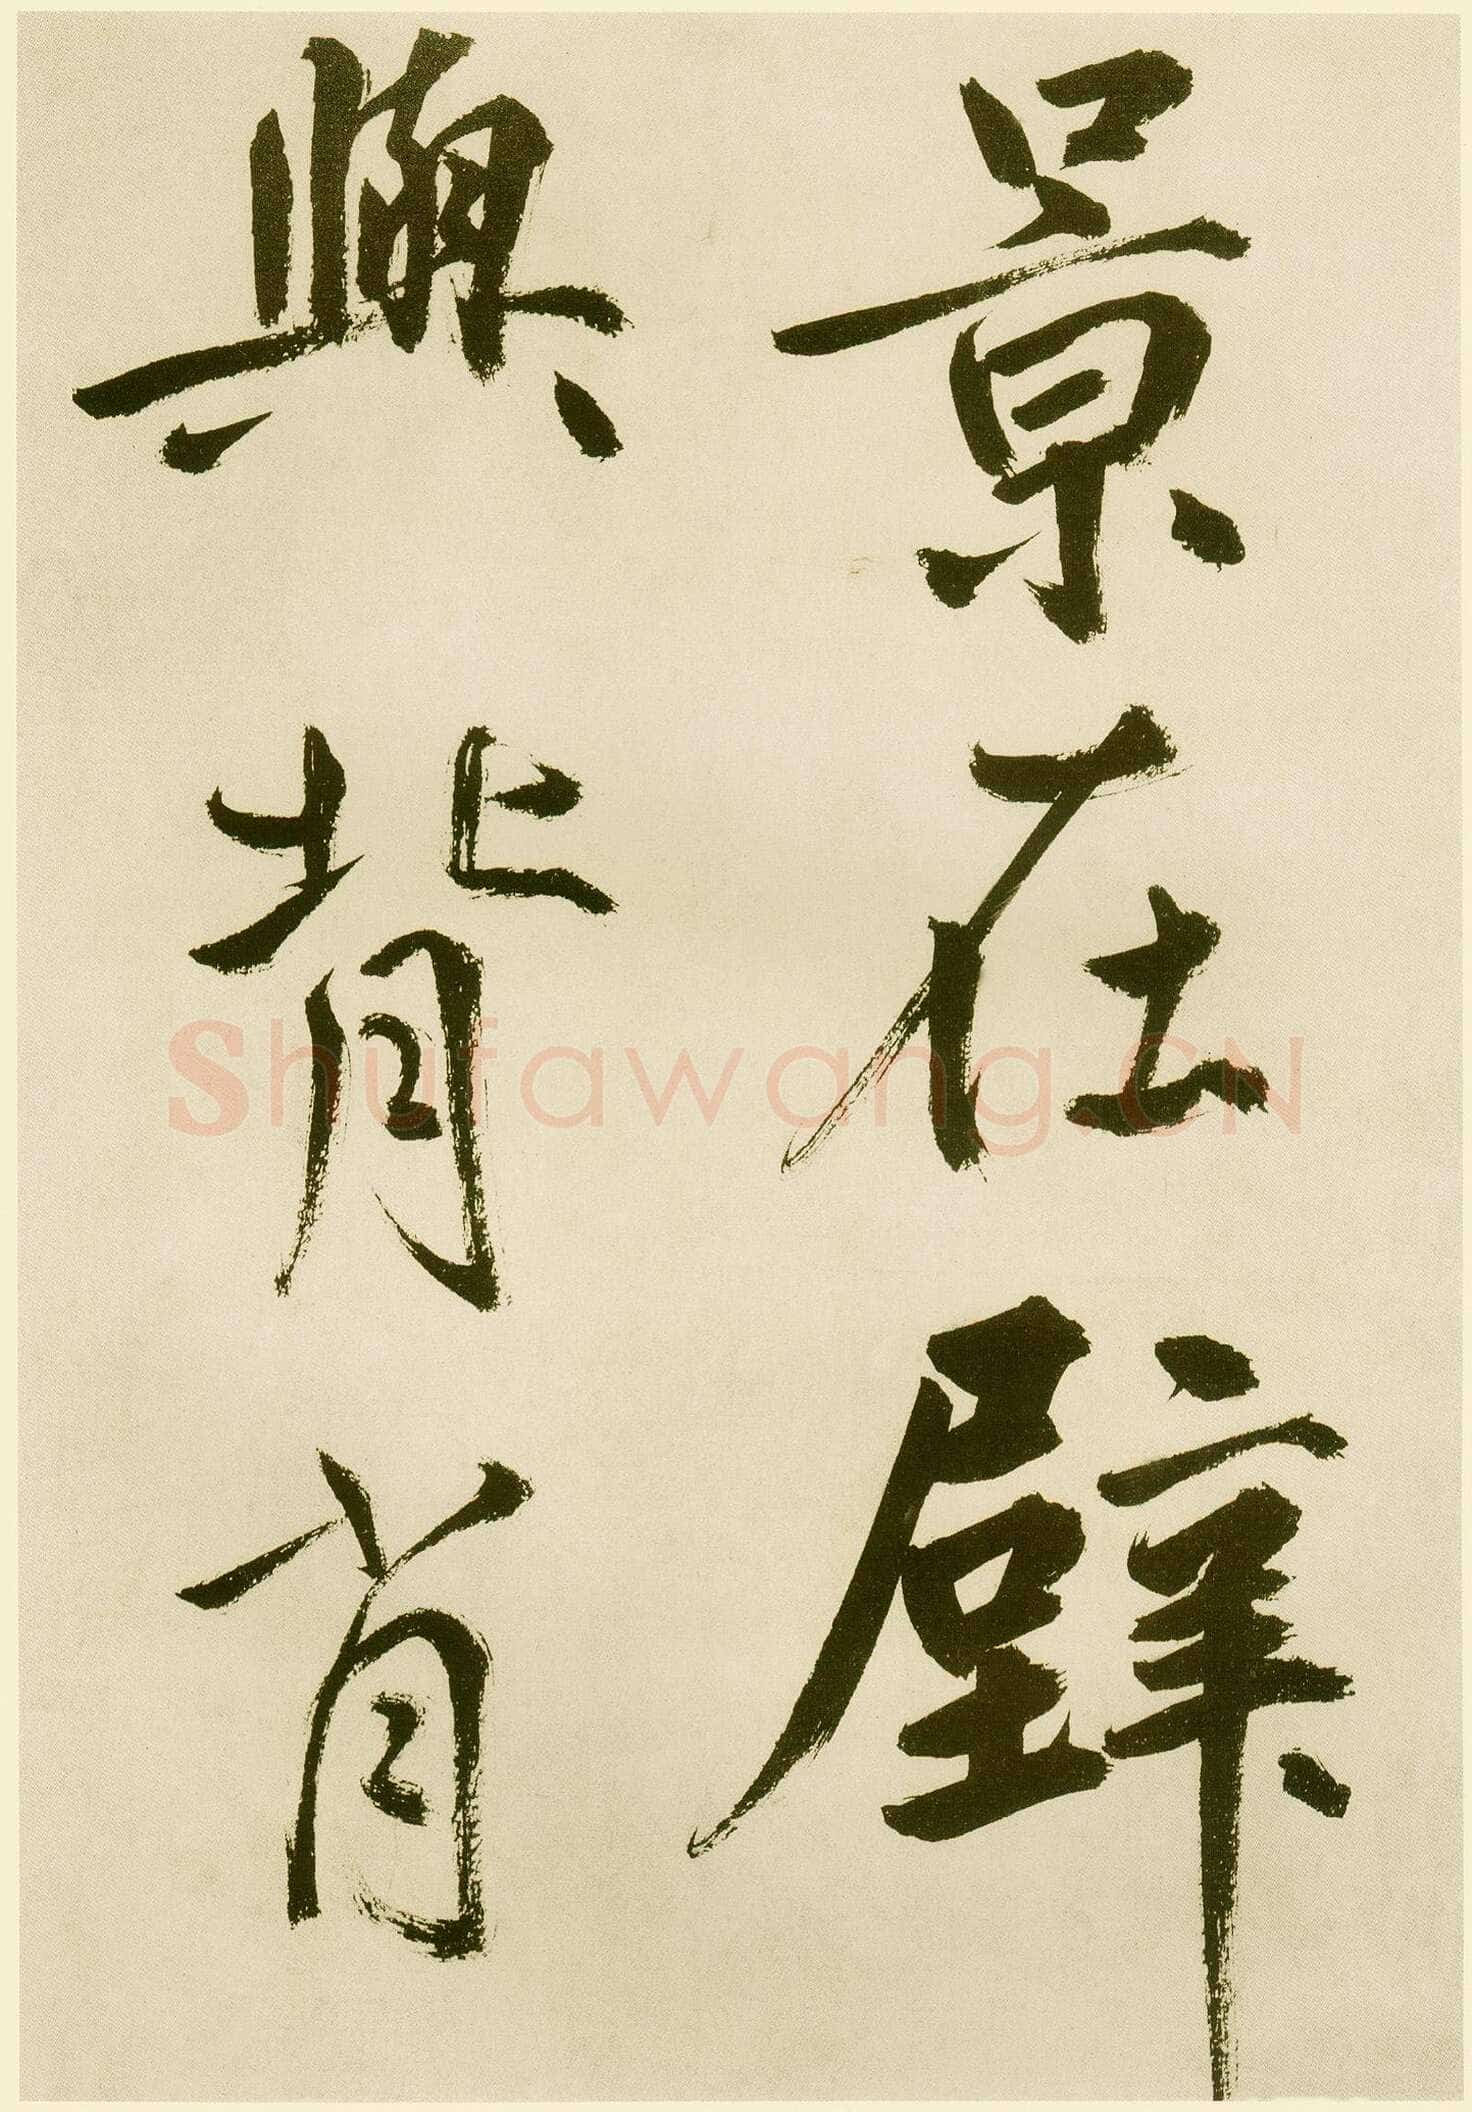 景在壁
與背肖
Shufawang.CN